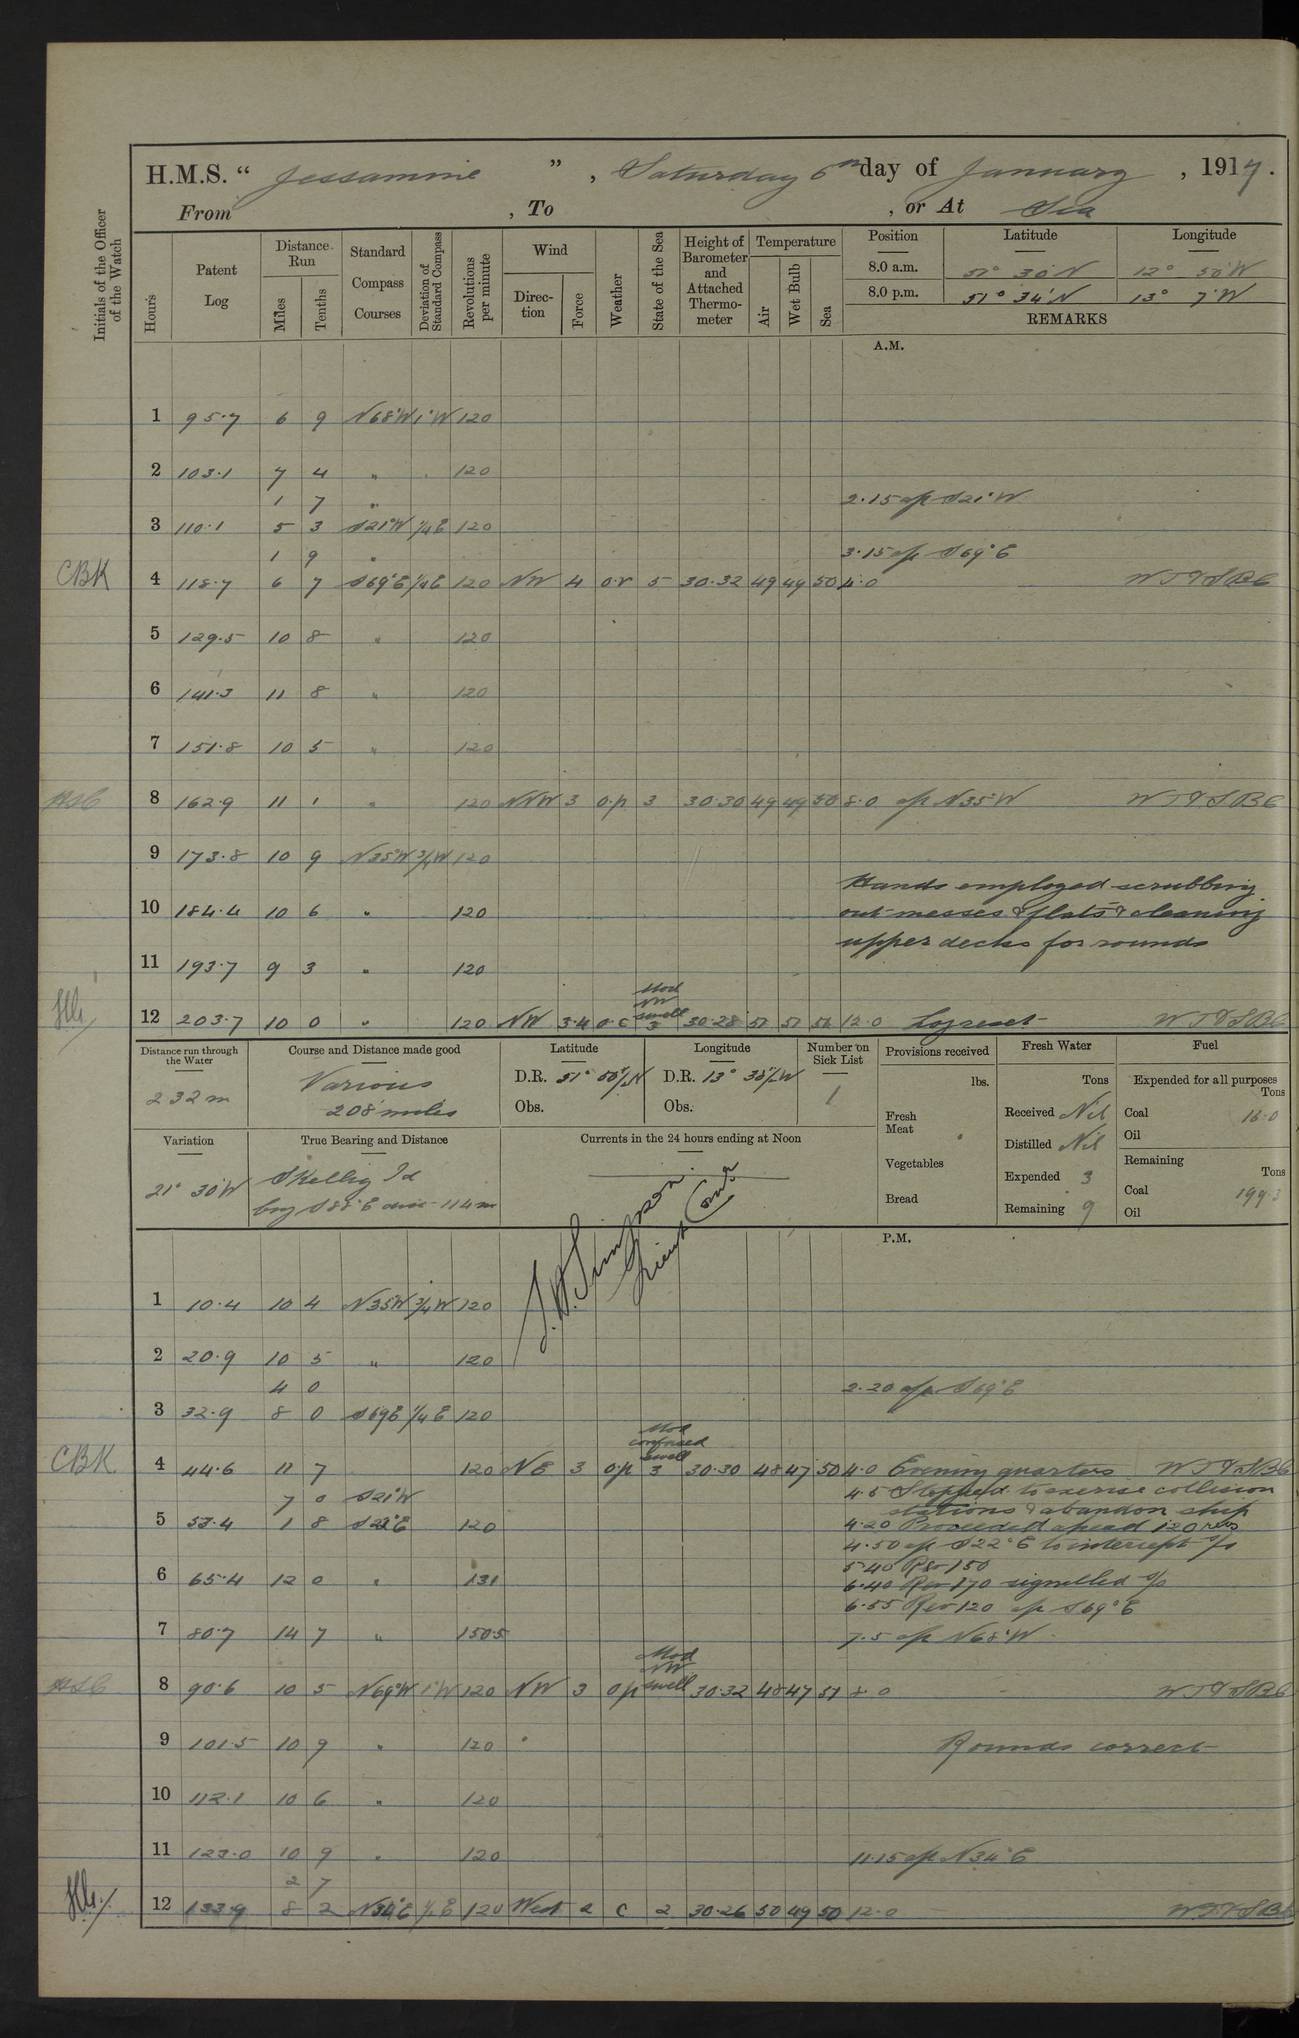 H.M.S. “ Jessamine ” , Saturday 6th day of January , 1917.
From , To , or At Sea
Initials of the Officer of the Watch
Hours
Patent Log
Distance Run
Miles
Tenths
Standard Compass Courses
Deviation of Standard Compass
Revolutions per minute
Wind
Direction
Force
Weather
State of the Sea
Height of Barometer and Attached Thermometer
Temperature
Air
Wet Bulb
Sea
Position Latitude Longitude
8.0 a.m. 51° 30'N 12° 50'W
8.0 p.m. 51° 34'N 13° 7'W
REMARKS
A.M.
1 95.7 6 9 N68°W 1°W 120
2 103.1 7 4 " . 120
1 7 " 2.15 a/c S21°W
3 110.1 5 3 S21°W 1/4E 120
1 9 " 3.15 a/c S69°E
CBK 4 118.7 6 7 S69°E 1/4E 120 NW 4 o.r 5 30.32 49 49 50 4.0 WT&SBC
5 129.5 10 8 " 120
6 141.3 11 8 " 120
7 151.8 10 5 " 120
8 162.9 11 1 " 120 NNW 3 o.p 3 30.30 49 49 50 8.0 a/c N35°W WT&SBC
9 173.8 10 9 N35°W 3/4W 120
Hands employed scrubbing
10 184.4 10 6 " 120 out messes & flats & cleaning
upper decks for rounds
11 193.7 9 3 " 120
Mod NW swell
12 203.7 10 0 " 120 NW 3.4 o.c 3 30.28 51 51 51 12.0 Log reset WT&SBC
Distance run through the Water
232 m
Course and Distance made good
Various
208 miles
Latitude
D.R. 51° 56'N
Obs.
Longitude
D.R. 13° 38'W
Obs.
Number on Sick List
1
Provisions received
lbs.
Fresh Meat
Vegetables
Bread
Fresh Water
Tons
Received Nil
Distilled Nil
Expended 3
Remaining 9
Fuel
Expended for all purposes
Tons
Coal 16.0
Oil
Remaining
Tons
Coal 199.3
Oil
Variation
21° 30'W
True Bearing and Distance
Skellig Id
brg S88°E dist 114m
Currents in the 24 hours ending at Noon
Simpson
Lieut Comdr
P.M.
1 10.4 10 4 N35°W 3/4W 120
2 20.9 10 5 " 120
4 0 2.20 a/c S69°E
3 32.9 8 0 S69E 1/4 E 120
Mod confused swell
CBK 4 44.6 11 7 120 NE 3 o.p 3 30.30 48 47 50 4.0 Evening quarters WT&SBC
7 0 S21°W 4.5 Stopped to exercise collision
stations & abandon ship
5 53.4 1 8 S22°E 120 4.20 Proceeded ahead 120 revs
4.50 a/c S22°E to intercept s/s
5.40 Rev 150
6 65.4 12 0 " 131 6.40 Rev 170 signalled s/s
6.55 Rev 120 a/c S69°E
7 80.7 14 7 " 150.5 7.5 a/c N68°W
Mod NW swell
8 90.6 10 5 N69°W 1°W 120 NW 3 o.p 30.32 48 47 51 8.0 WT&SBC
9 101.5 10 9 " 120 Rounds correct
10 112.1 10 6 " 120
11 123.0 10 9 " 120 11.15 a/c N34°E
2 7
12 133.9 8 2 N34°E 120 West 2 c 2 30.26 50 49 50 12.0 WT&SBC